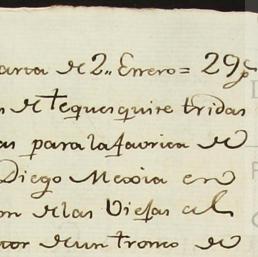 arta de 2,, Enero = 29 p
s de tequesquite tridas
as para la favrica de
Diego Mexia en
on de las Viejas al
tor de un tronco de